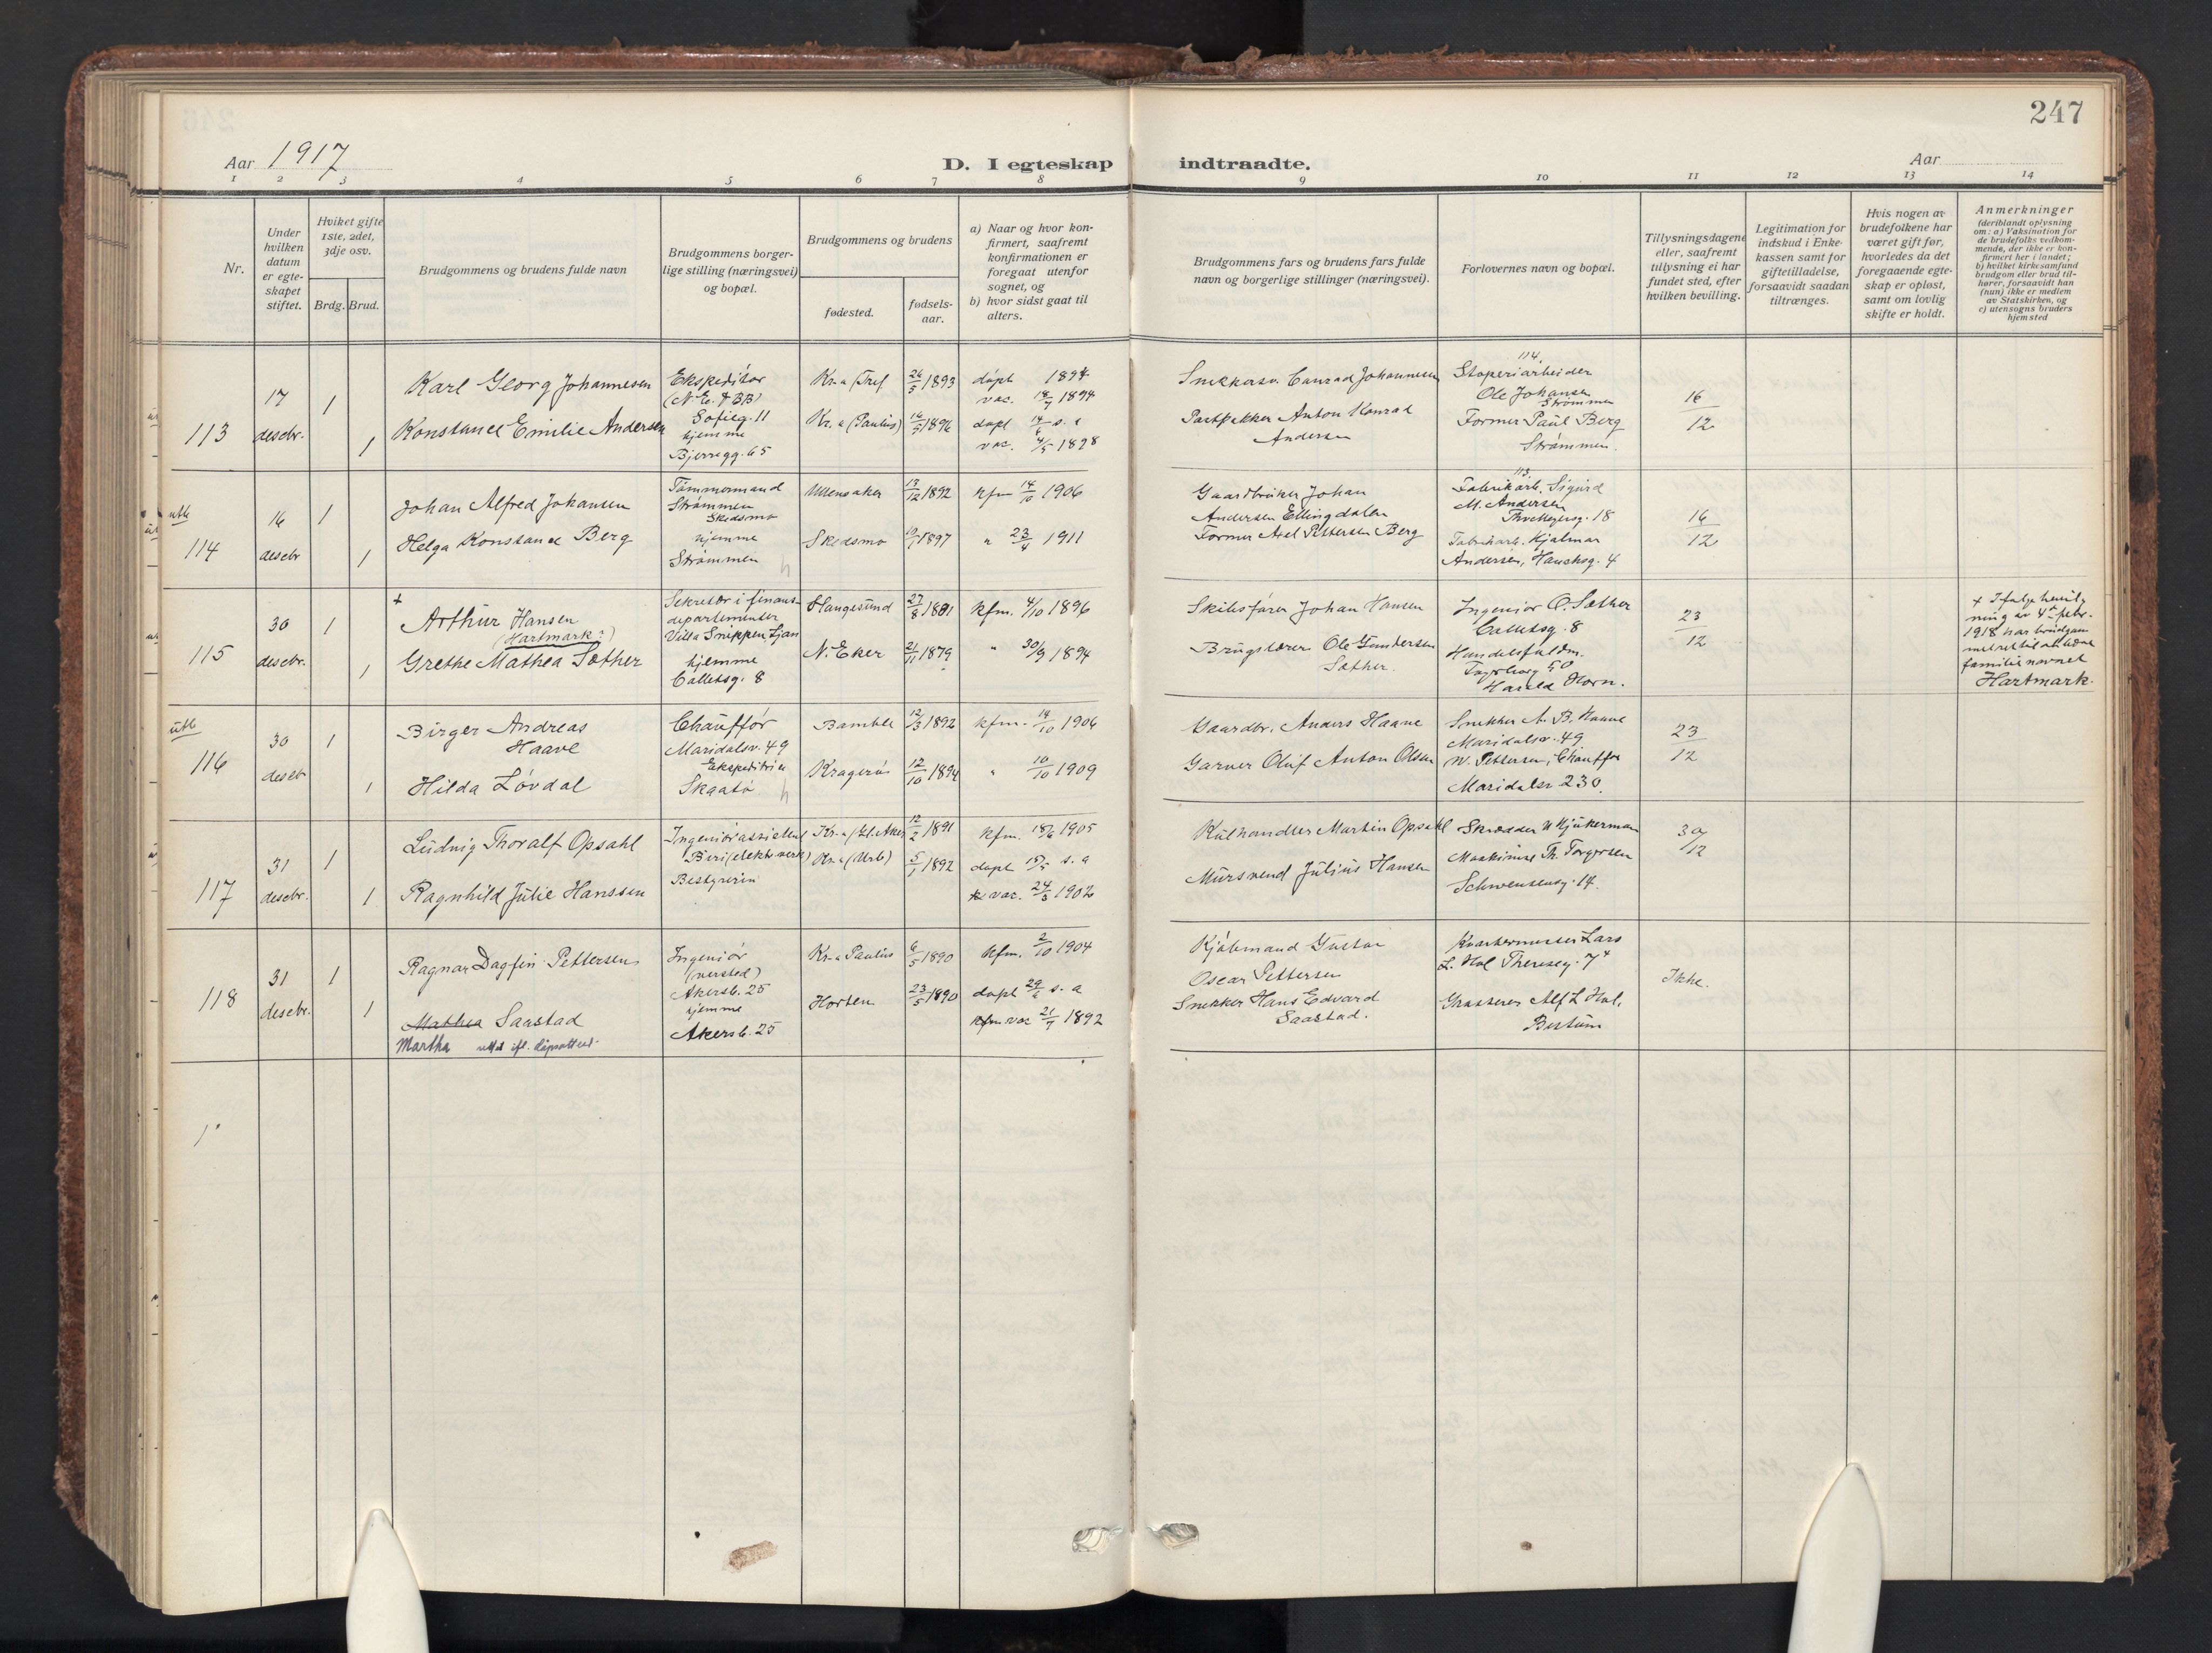 247
Aar 1917
D. I egteskap indtraadte.
Aar
1 2 3 4 5 6 7 8 9 10 11 12 13 14
Nr.
Under hvilken datum er egteskapet stiftet.
Hvilket gifte 1ste, 2det, 3dje osv.
Brdg. Brud.
Brudgommens og brudens fulde navn
Brudgommens borgerlige stilling (næringsvei) og bopæl.
Brudgommens og brudens
fødested.
fødselsaar.
a) Naar og hvor konfirmert, saafremt konfirmationen er foregaat utenfor sognet, og
b) hvor sidst gaat til alters.
Brudgommens fars og brudens fars fulde navn og borgerlige stillinger (næringsvei).
Forlovernes navn og bopæl.
Tillysningsdagene eller, saafremt tillysning ei har fundet sted, efter hvilken bevilling.
Legitimation for indskud i Enkekassen samt for giftetilladelse, forsaavidt saadan tiltrænges.
Hvis nogen av brudefolkene har været gift før, hvorledes da det foregaaende egteskap er opløst, samt om lovlig skifte er holdt.
Anmerkninger
(deriblandt oplysning om: a) Vaksination for de brudefolks vedkommende, der ikke er konfirmert her i landet; b) hvilket kirkesamfund brudgom eller brud tilhører, forsaavidt han (hun) ikke er medlem av Statskirken, og c) utensogns bruders hjemsted
113
17 desebr.
1
1
Karl Georg Johannesen
Konstance Emilie Andersen
Ekspeditør
(N. E. & BB)
Sofieg. 11
hjemme
Bjerregg. 65
Kr.a (Tref 26/5 1893
Kr.a (Paulus) 16/5 1896
døpt 1894
vac. 18/7 1894
døpt 14/6 s. a
vac. 4/5 1898
Snekkersv. Conrad Johannesen
Postpakker Anton Konrad
Andersen
114
Støperiarbeider
Ole Johansen
Strømmen
Former Paul Berg
Strømmen.
16/12
utb
114
16 desebr
1
1
Johan Alfred Johansen
Helga Konstance Berg
Tømmermand
Strømmen
Skedsmo
hjemme
Strømmen
Ullensaker 13/12 1892
Skedsmo 19/7 1897
kfm 14/10 1906
" 23/4 1911
Gaardbruker Johan
Andersen Ellingdalen
Former Axel Pettersen Berg
113
Fabrikarb. Sigurd
M. Andersen
Thv Meyersg. 18
Fabrikarb. Hjalmar
Andersen, Hauchsg. 4
16/12
115
30 desebr.
1
1
+
Arthur Hansen
(Hartmark?)
Grethe Mathea Sæther
Sekretær i finans-
departementet
Villa Snippen, Ljan
hjemme
Calletsg. 8
Haugesund 27/8 1881
N. Eker 21/11 1879
kfm. 4/10 1896
" 30/9 1894
Skibsfører Johan Hansen
Brugslærer Ole Gundersen
Sæther.
Ingeniør O. Sæther
Calletsg. 8
Handelsfuldm.
Harald Horn.
23/12
+ Ifølge bevil-
ning av 4de febr.
1918 har brudgom
met ret til at bære
familienavnet
Hartmark.
utb
116
30 desebr
1
1
Birger Andreas
Haave
Hilda Løvdal
Chauffør
Maridalsv. 49
Ekspeditrice
Skaatø
Bamble 12/3 1892
Kragerø 12/10 1894
kfm. 14/10 1906
" 10/10 1909
Gaardbr. Anders Haave
Garver Oluf Anton Olsen
Snekker A. B. Haave
Maridalsv. 49
W. Pettersen, Chauffør
Maridalsv 230.
23/12
117
31 desebr.
1
1
Ludvig Thoralf Opsahl
Ragnhild Julie Hanssen
Ingeniørassistent
Biri (elektr. verk)
Bestyrerin
Kr.a (Gl. Aker 12/2 1891
Kr.a (Urb) 5/1 1892
kfm. 18/6 1905
døpt 15/5 s. a
vac. 24/3 1902
Kulhandler Martin Opsahl
Mursvend Julius Hansen
Skrædder W Hjukerman
Maskinist Th. Torgersen
Schwensensg. 14.
30/12
118
31 desebr.
1
1
Ragnar Dagfin Pettersen
Mathea Saastad
Martha rettet ifl. dåpsattest
Ingeniør
(versted)
Akersb. 25
hjemme
Akersb. 25
Kr.a Paulus 6/5 1890
Horten 23/5 1890
kfm. 2/10 1904
døpt 29/6 s. a
kfm vac 21/7 1892
Kjøbmand Gustav
Oscar Pettersen
Snekker Hans Edvard
Saastad.
Kvartermester Lars
L. Hol Theresesg. 7
Alf L Hol,
Bestum
Ikke.